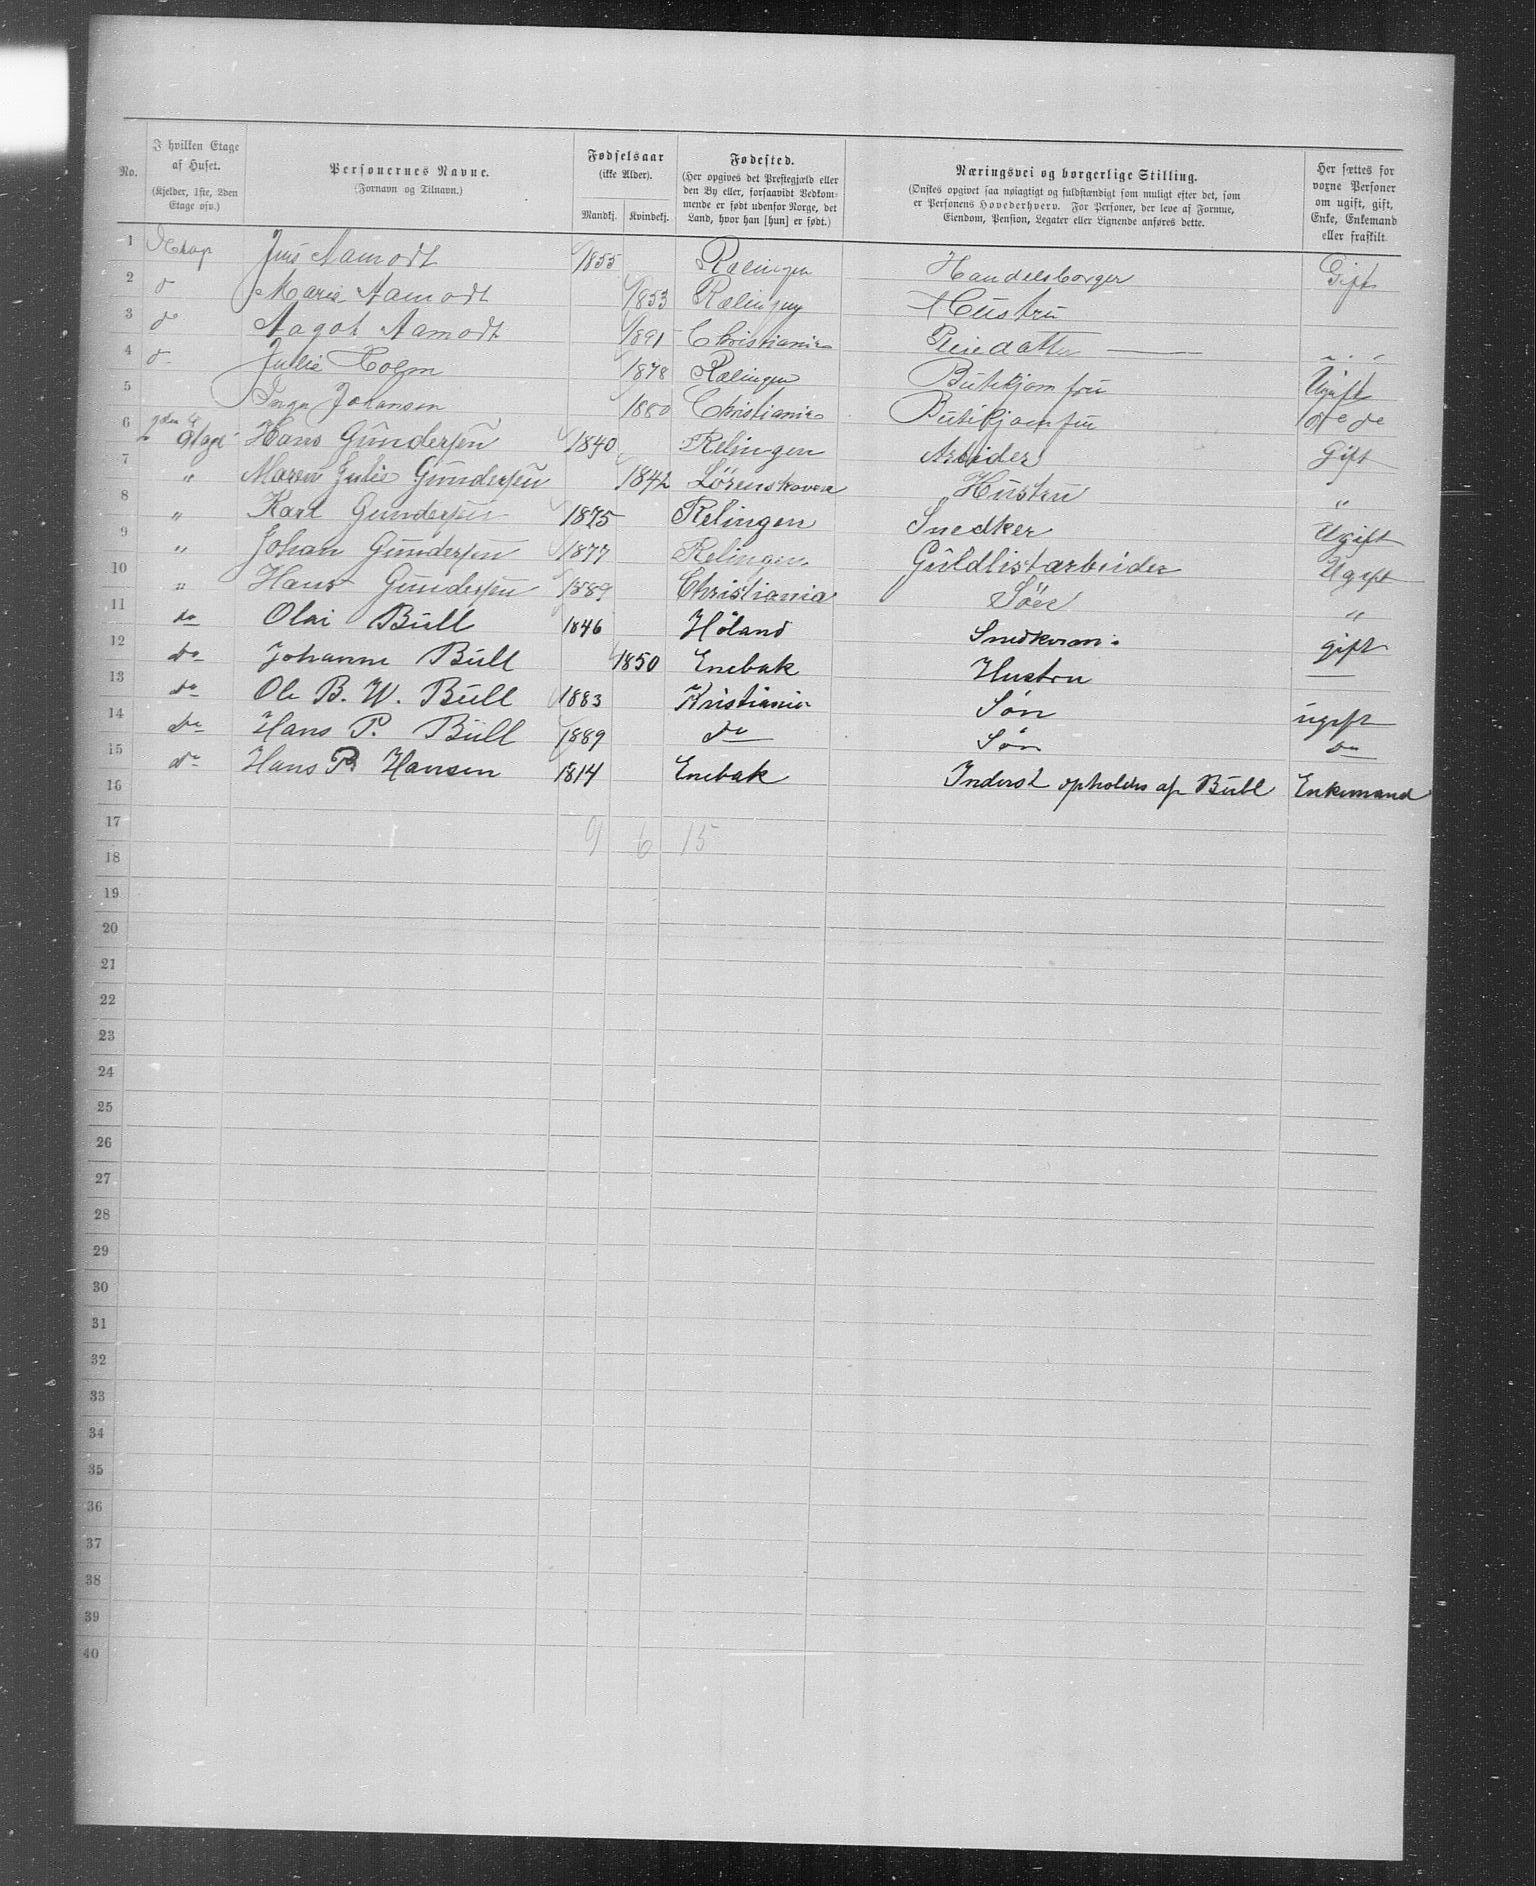 No. | I hvilken Etage af Huset. (Kjelder, 1ste, 2den Etage osv.) | Personernes Navne. (Fornavn og Tilnavn.) | Fødselsaar (ikke Alder). Mandkj. | Kvindekj. | Fødested. (Her opgives det Prestegjæld eller den By eller, forsaavidt Vedkommende er født udenfor Norge, det Land, hvor han [hun] er født.) | Næringsvei og borgerlige Stilling. (Ønskes opgivet saa nøiagtigt og fuldstændigt som muligt efter det, som er Personens Hovederhverv. For Personer, der leve af Formue, Eiendom, Pension, Legater eller Lignende anføres dette. | Her sættes for voxne Personer om ugift, gift, Enke, Enkemand eller fraskilt.
1 Jens Aamodt 1855 Rælingen Handelsborger Gift
2 do Marie Aamodt 1853 Rælingen Hustru
3 do Aagot Aamodt 1891 Christiania Pleiedatter — " . "
4 do Julie Holm 1878 Rælingen Butikjomfru Ugift
5 Inga Johansen 1880 Christiania Butikjomfru do do
6 2den Etage Hans Gundersen 1840 Relingen Arbeider Gift
7 " Maren Julie Gundersen 1842 Lørenskoven Hustru "
8 " Karl Gundersen 1875 Relingen Snedker Ugift
9 " Johan Gundersen 1877 Relingen Guldlistarbeider Ugift
10 " Hans Gundersen 1889 Christiania Søn "
11 do Olai Bull 1846 Høland gift
12 do Johanne Bull 1850 Enebak Hustru —
13 do Ole B. W. Bull 1883 Kristiania Søn ugift
14 do Hans P. Bull 1889 do Søn do
15 do Hans P. Hansen 1814 Enebak Inderst opholdes af Bull Enkemand
16
17 9 6 15
18
19
20
21
22
23
24
25
26
27
28
29
30
31
32
33
34
35
36
37
38
39
40